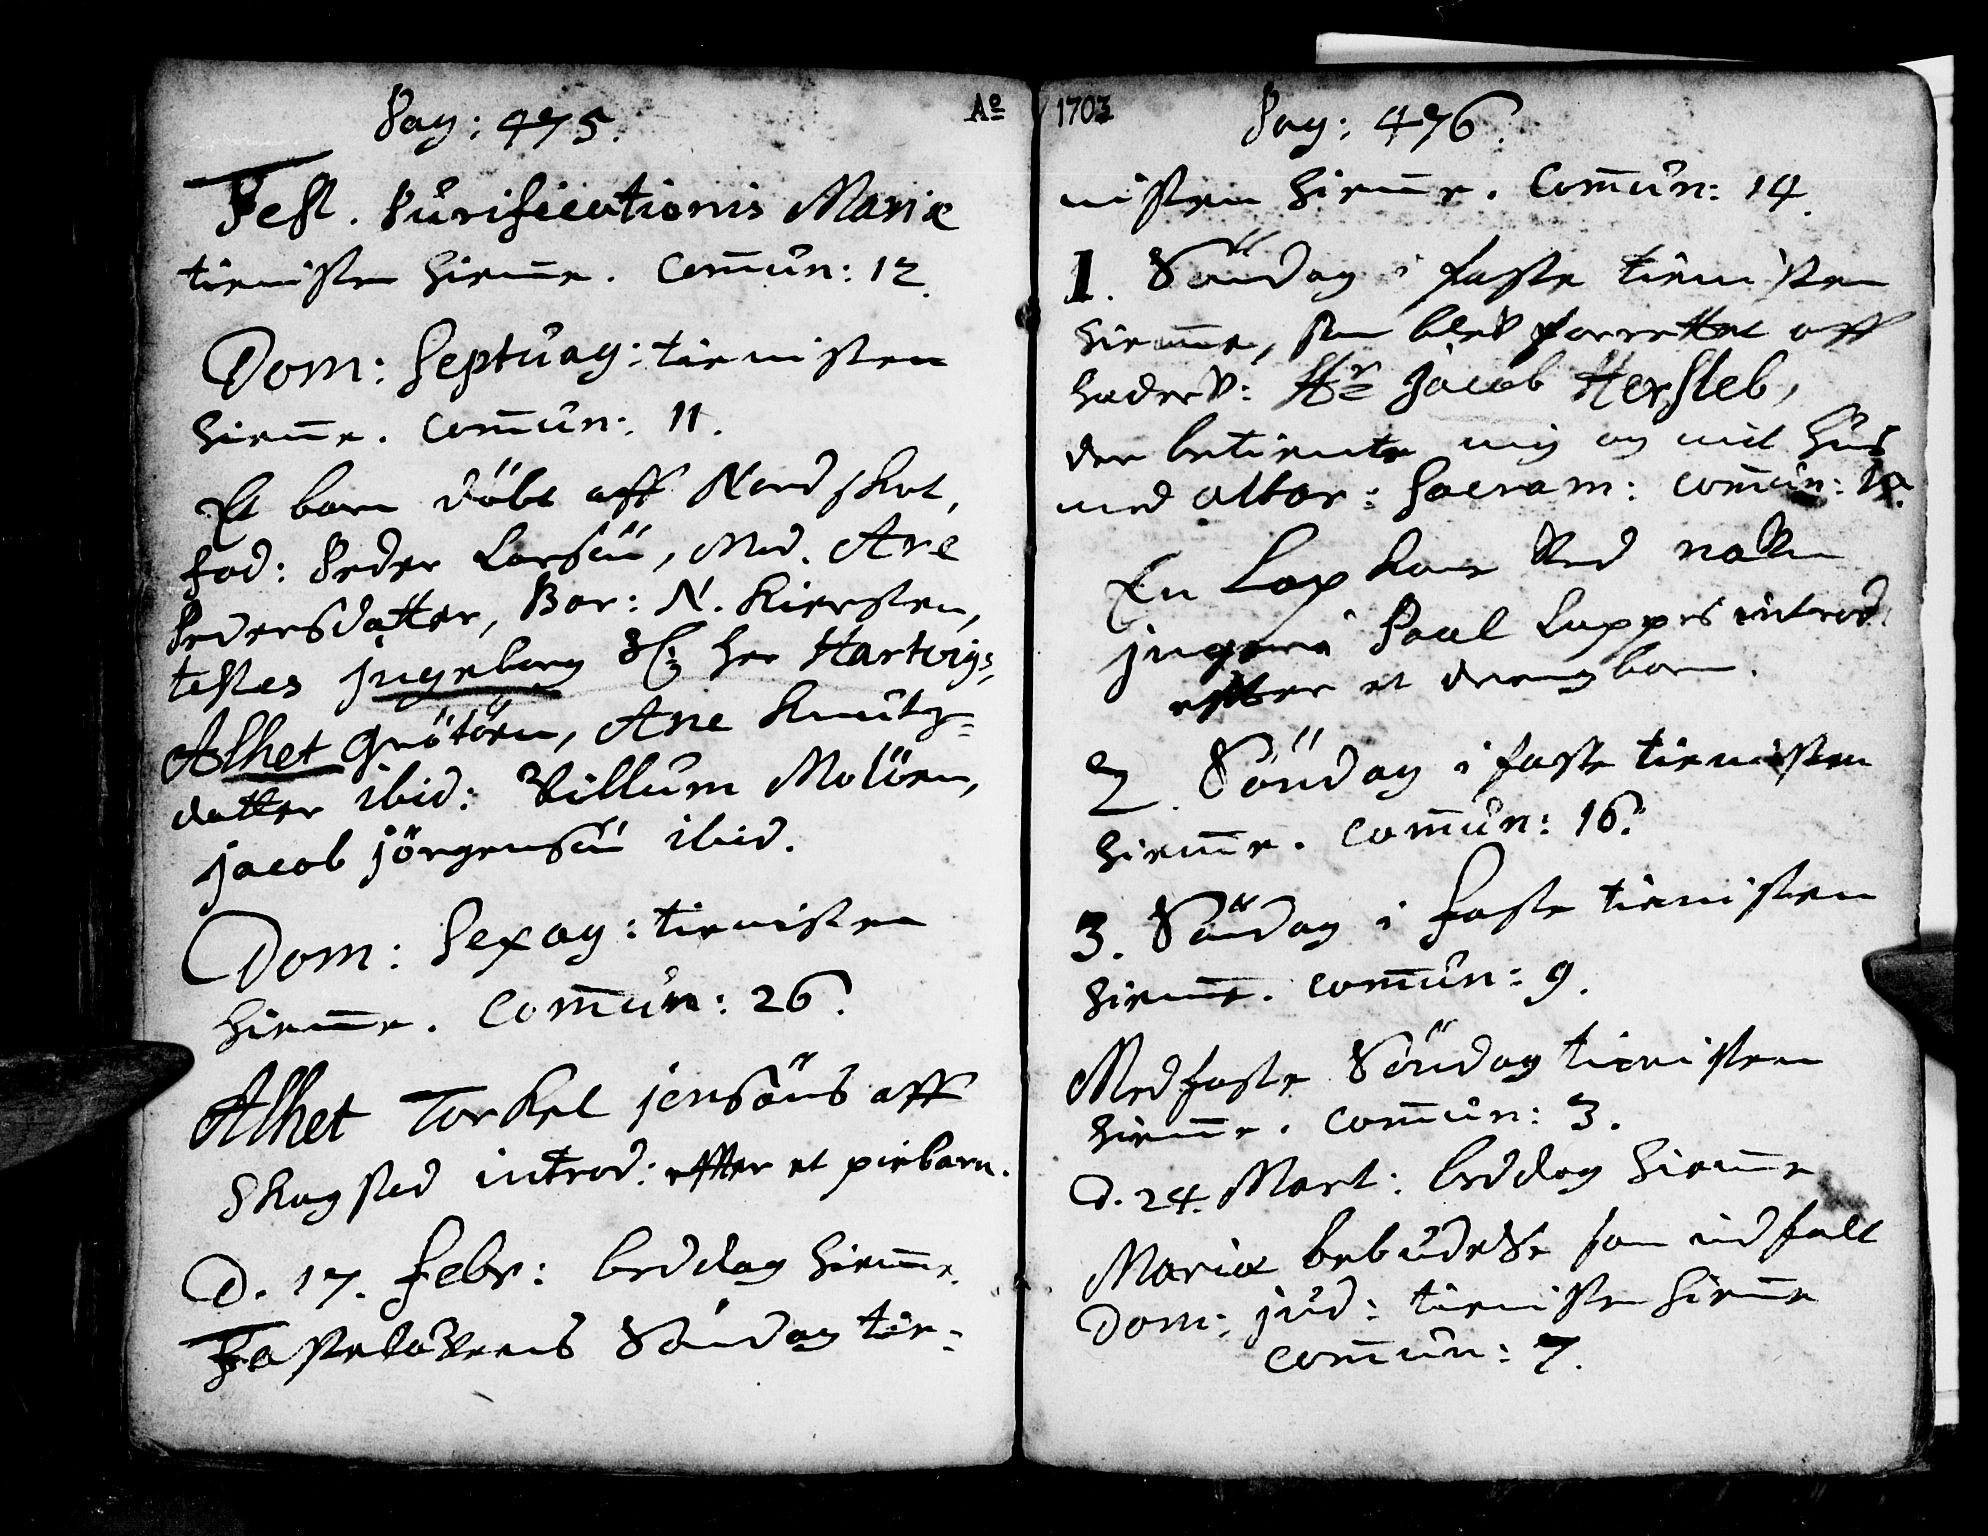 Pag: 475.
Aº
Fest. Purificationis Mariæ
tienisten hiem̄e. Com̄un: 12.
Dom: Septuag: tienisten
hiem̄e. Com̄un: 11.
Et barn döbt aff Nordskot,
fad: Peder Larsön, Mod. Ane
Pedersdatter, Bar: N. Kiersten,
testes Jngeborg Sl: her Hartvigs,
Alhet Grötöen, Ane Knuts=
datter ibid: Villum Molöen,
Jacob Jörgensön ibid.
Dom: Sexag: tienisten
hiem̄e. Com̄un: 26.
Alhet Torkel Jensöns aff
Skagsted introd: effter et piebarn.
D. 17. Febr: beddag hiem̄e.
Fastelavens Söndag tie=
1703
Pag: 476.
nisten hiem̄e. Com̄un: 14.
1. Söndag i faste tienisten
hiemme, som blev forrettet aff
hæderv: Hr Jacob Hersleb,
der betiente mig og mit huus
med Altar: Sacram: Com̄un:
En Lap kone ved
Paul Lappes introd.
effter et drengbarn.
2. Söndag i faste tienisten
hiem̄e. Com̄un: 16.
3. Söndag i Faste tienisten
hiem̄e. Com̄un: 9.
Medfaste Söndag tienisten
hiem̄e. Com̄un: 3.
D. 24. Mart: beddag hiem̄e
Mariæ bebudelse som indfalt
Dom: jud: tienisten hiem̄e
Com̄un: 7.